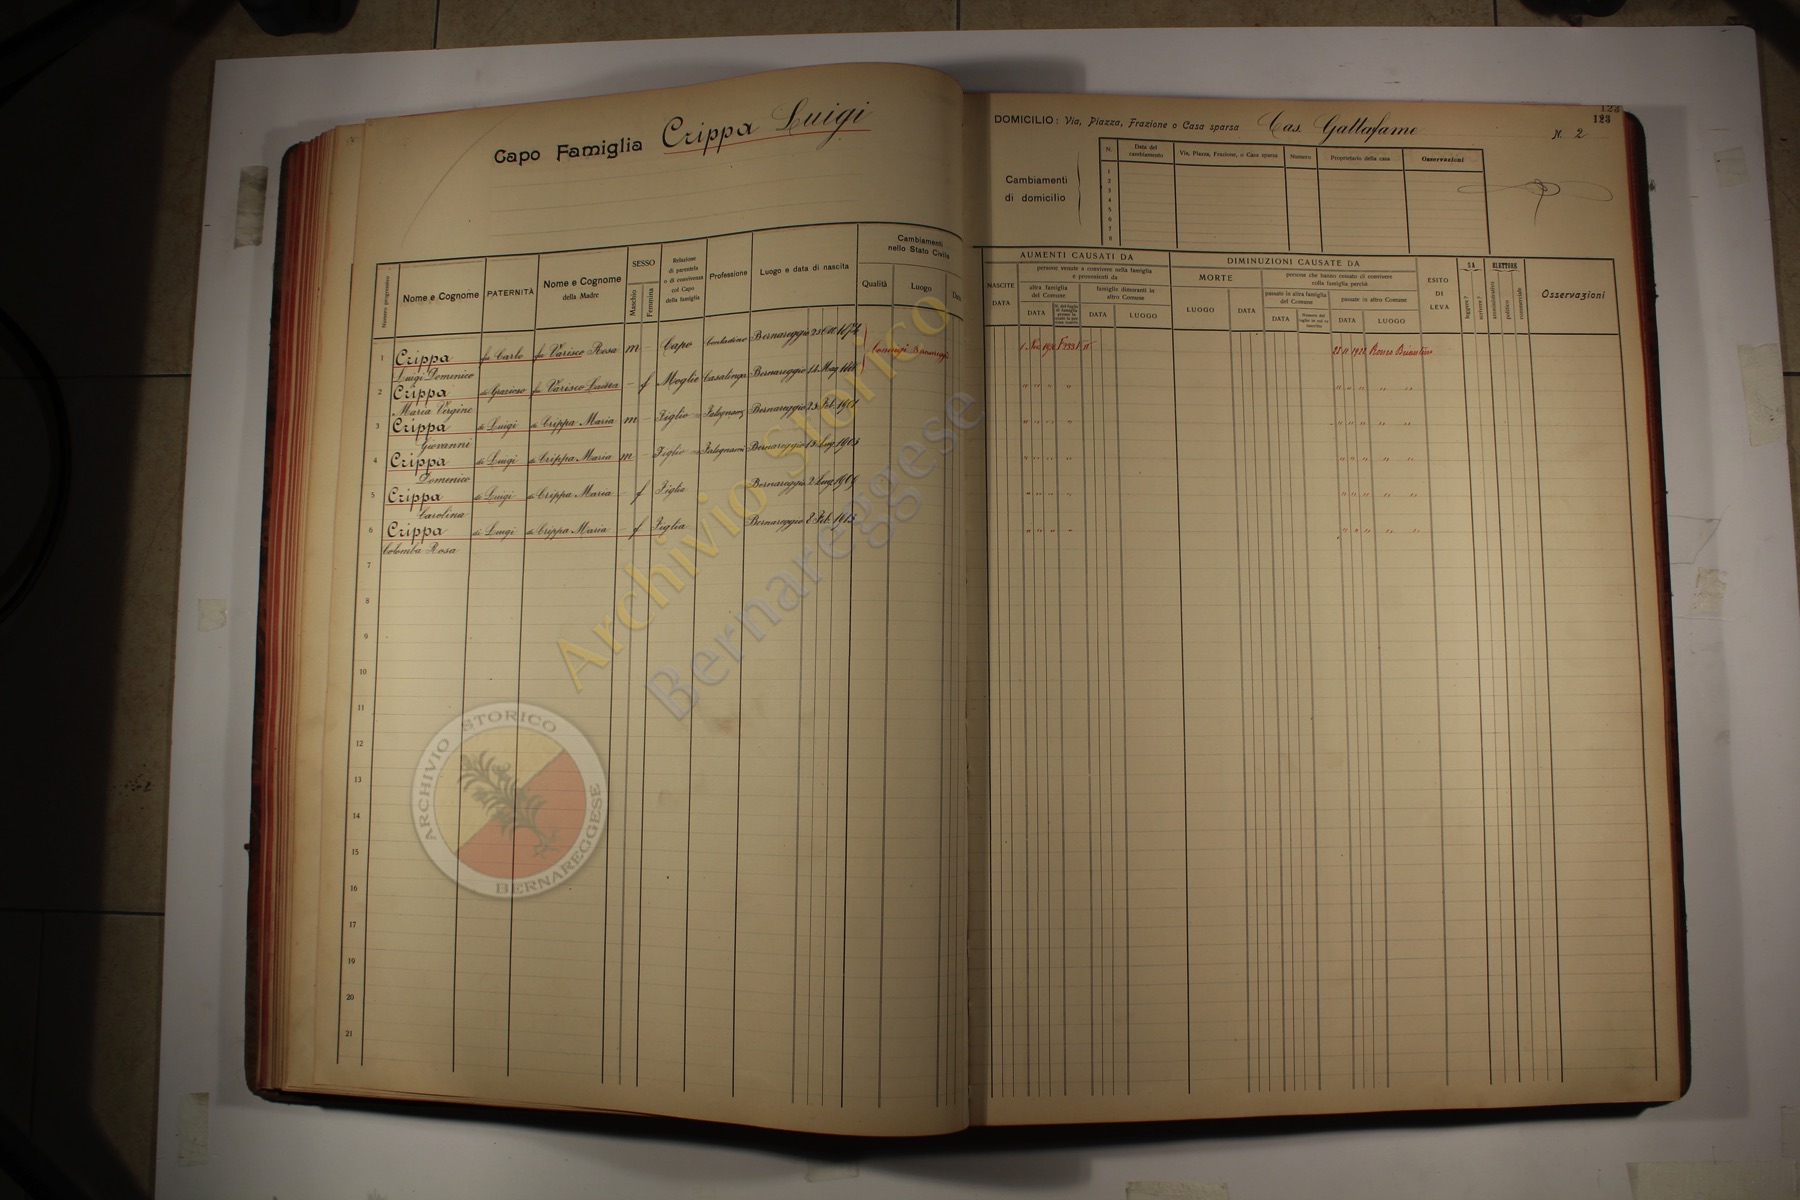 Capo Famiglia Crippa Luigi
Numero progressivo
Nome e Cognome
PATERNITÀ
Nome e Cognome
della Madre
SESSO
Maschio
Femmina
Relazione
di parentela
o di convivenza
col Capo
della famiglia
Professione
Luogo e data di nascita
Cambiamenti
nello Stato Civile
Qualità
Luogo
Data
1 Crippa fu Carlo fu Varisco Rosa m - Capo Contadino Bernareggio 1874
Luigi Domenico
Coniugi Bernareggio
2 Crippa di Grazioso fu Varisco Luisa - f Moglie Casalinga Bernareggio 14 Mag.
Maria Virgine
3 Crippa di Luigi di Crippa Maria m - Figlio Falegname Bernareggio 23 Feb. 1901
Giovanni
4 Crippa di Luigi di Crippa Maria m - Figlio Falegname Bernareggio 1903
Domenico
5 Crippa di Luigi di Crippa Maria - f Figlia Bernareggio 2 1909
Carolina
6 Crippa di Luigi di Crippa Maria - f Figlia Bernareggio 8 Feb. 1913
Colomba Rosa
7
8
9
10
11
12
13
14
15
16
17
18
19
20
21
123
123
DOMICILIO: Via, Piazza, Frazione o Casa sparsa Cas. Gallafame N. 2
Cambiamenti
di domicilio
N.
Data del
cambiamento
Via, Piazza, Frazione, o Casa sparsa
Numero
Proprietario della casa
Osservazioni
1
2
3
4
5
6
7
8
AUMENTI CAUSATI DA
NASCITE
DATA
persone venute a convivere nella famiglia
e provenienti da
altra famiglia
del Comune
DATA
famiglie dimoranti in
altro Comune
DATA
LUOGO
DIMINUZIONI CAUSATE DA
MORTE
LUOGO
DATA
persone che hanno cessato di convivere
colla famiglia perchè
passate in altra famiglia
del Comune
DATA
passate in altro Comune
DATA
LUOGO
ESITO
DI
LEVA
SA
leggere?
scrivere?
ELETTORE
amministrativo
politico
commerciale
Osservazioni
22 11 1922 Ronco Briantino
" " " "
" " " " "
" " " "
" " " " "
" " " "
" " " " "
" " " "
" " " " "
" " " "
" " " " "
Archivio Storico
Bernareggese
ARCHIVIO STORICO
BERNAREGGESE